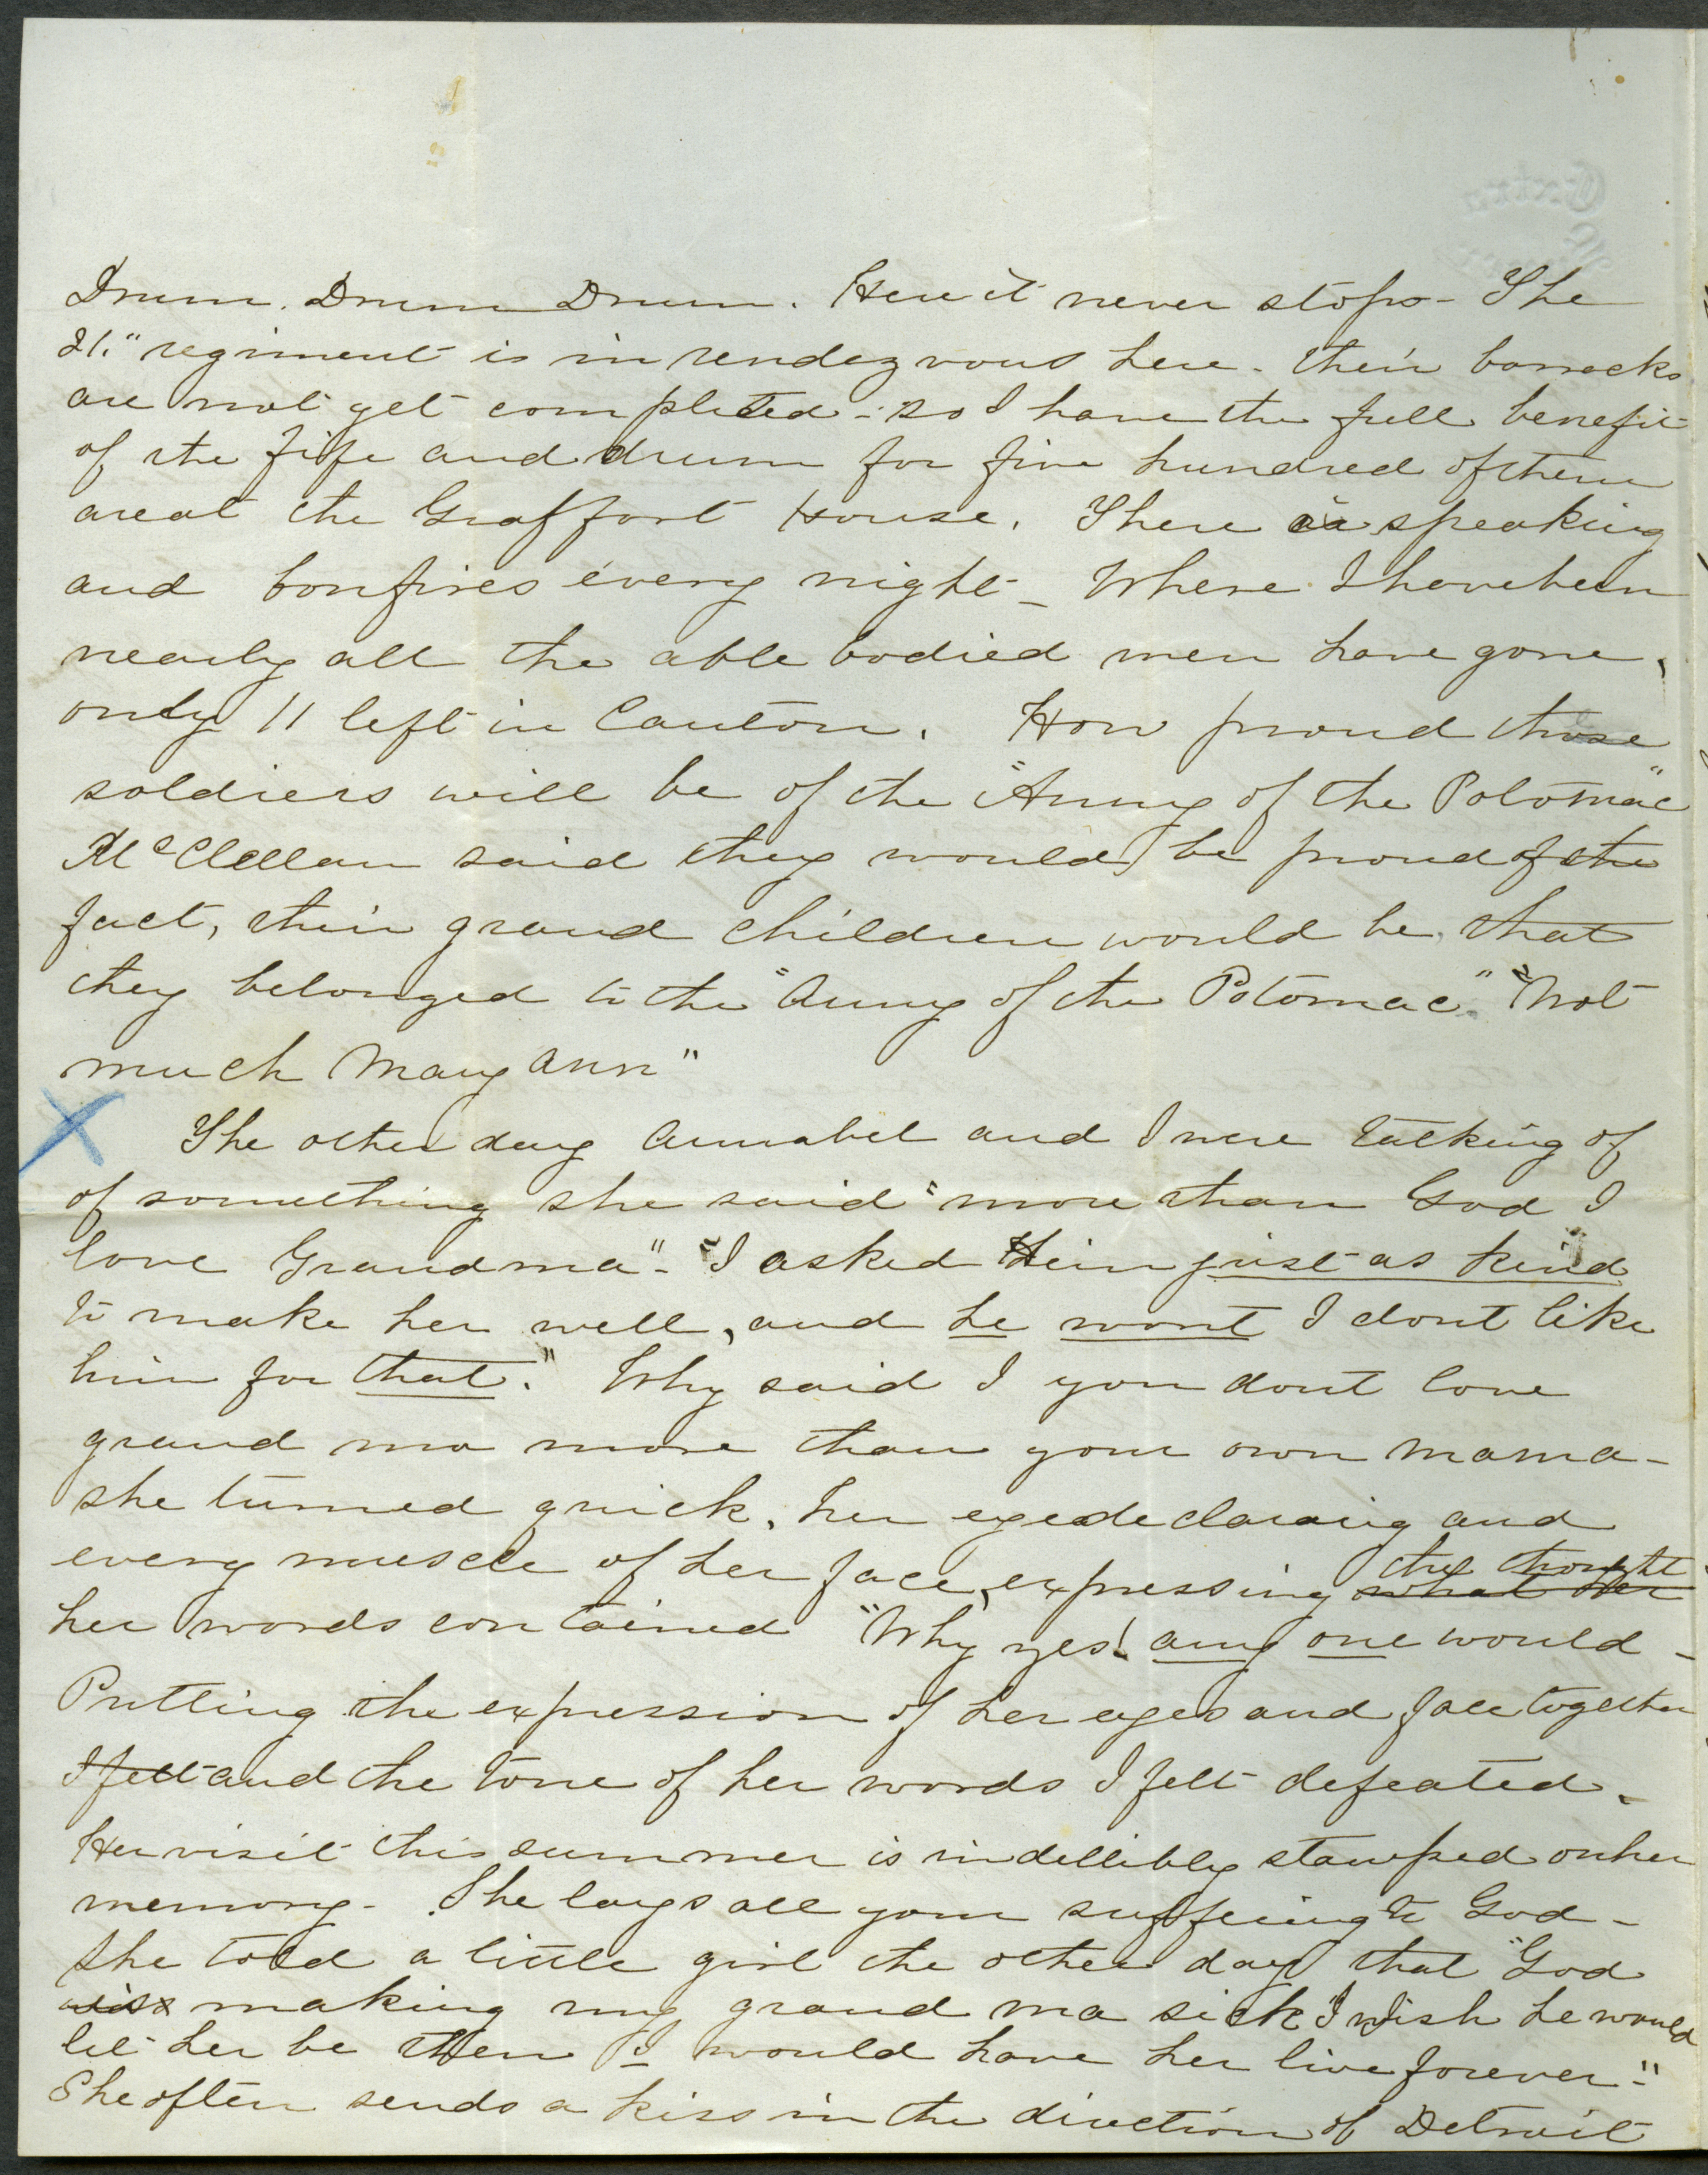 Drum. Drum Drum. Here it never stops - The
21." regiment is in rendezvous here - their barracks
are not yet completed - so I have the full benefit
of the fife and drum for five hundred of them
are at the Graffort House. There is speaking
and bonfires every night - Where I have been
nearly all the able bodied men have gone,
only 11 left in Canton. How proud those
soldiers will be of the "Army of the Potomac"
McClellan said they would be proud of the
fact, their grand children would be, that
they belonged to the "Army of the Potomac." "Not
much Mary Ann"
The other day Annabel and I were talking of
of something she said "more than God I
love Grandma" - "I asked Him just as kind
to make her well, and he wont I dont like
him for that." Why said I you dont love
grand ma more than your own mama -
she turned quick, her eyes declaring and
every muscle of her face, expressing what her the thought
her words contained "Why yes! any one would -
Putting the expression of her eyes and face together
I felt and the tone of her words I felt defeated.
Her visit this summer is indellibly stamped on her
memory - She lays all your suffering to God -
She told a little girl the other day that "God
making my grand ma sick" I wish he would
let her be then I would have her live forever -"
She often sends a kiss in the direction of Detroit